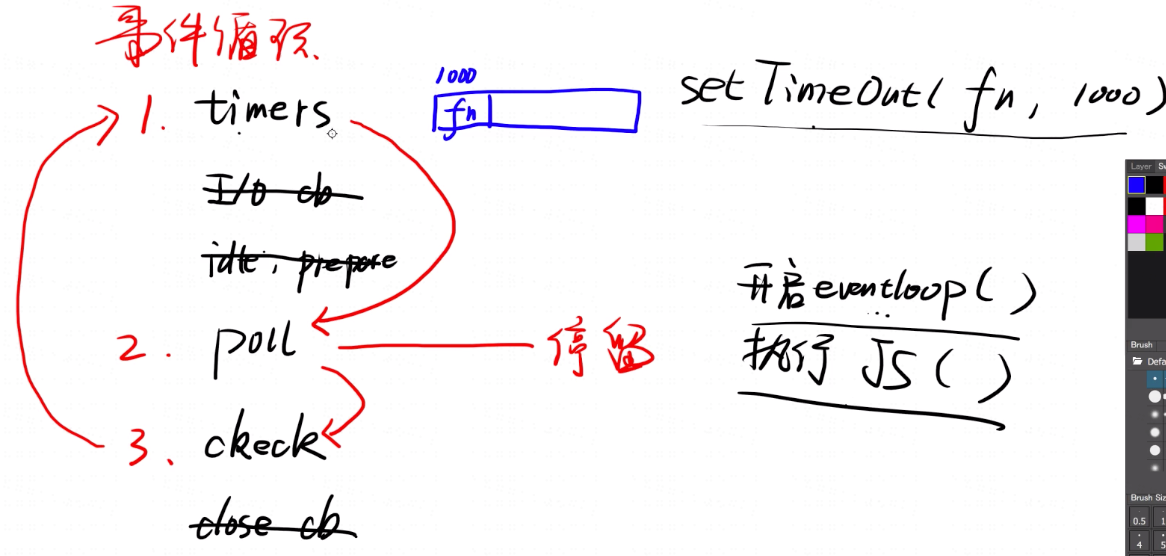 事件循环
1. timers
I/O cb
idle, prepare
2. poll
停留
3. ckeck
close cb
1000
fn
setTimeOut( fn, 1000)
开启eventloop()
执行 JS ()
Layer Sw
Brush
Defa
Brush Siz
0.5 1
4 5